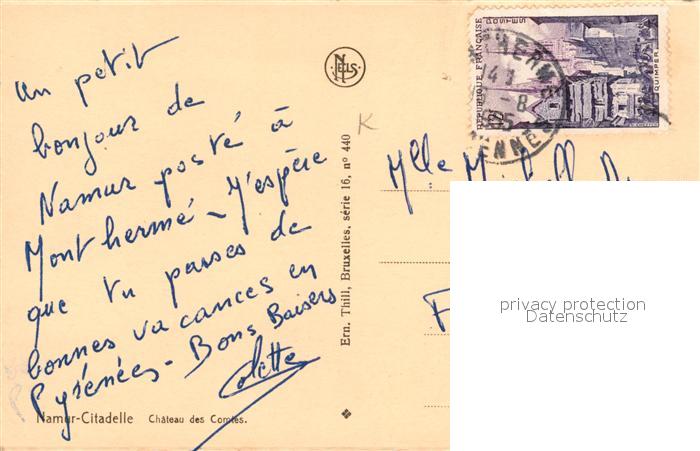 un petit
bonjour de
Namur posté à
Monthermé - J'espère
que tu passes de
bonnes vacances en
Pyrénées - Bons Baisers
Colette
Namur-Citadelle Château des Comtes.
NELS
K
Ern. Thill, Bruxelles, série 16, nº 440
RÉPUBLIQUE FRANÇAISE
POSTES
QUIMPER
Mlle
privacy protection
Datenschutz